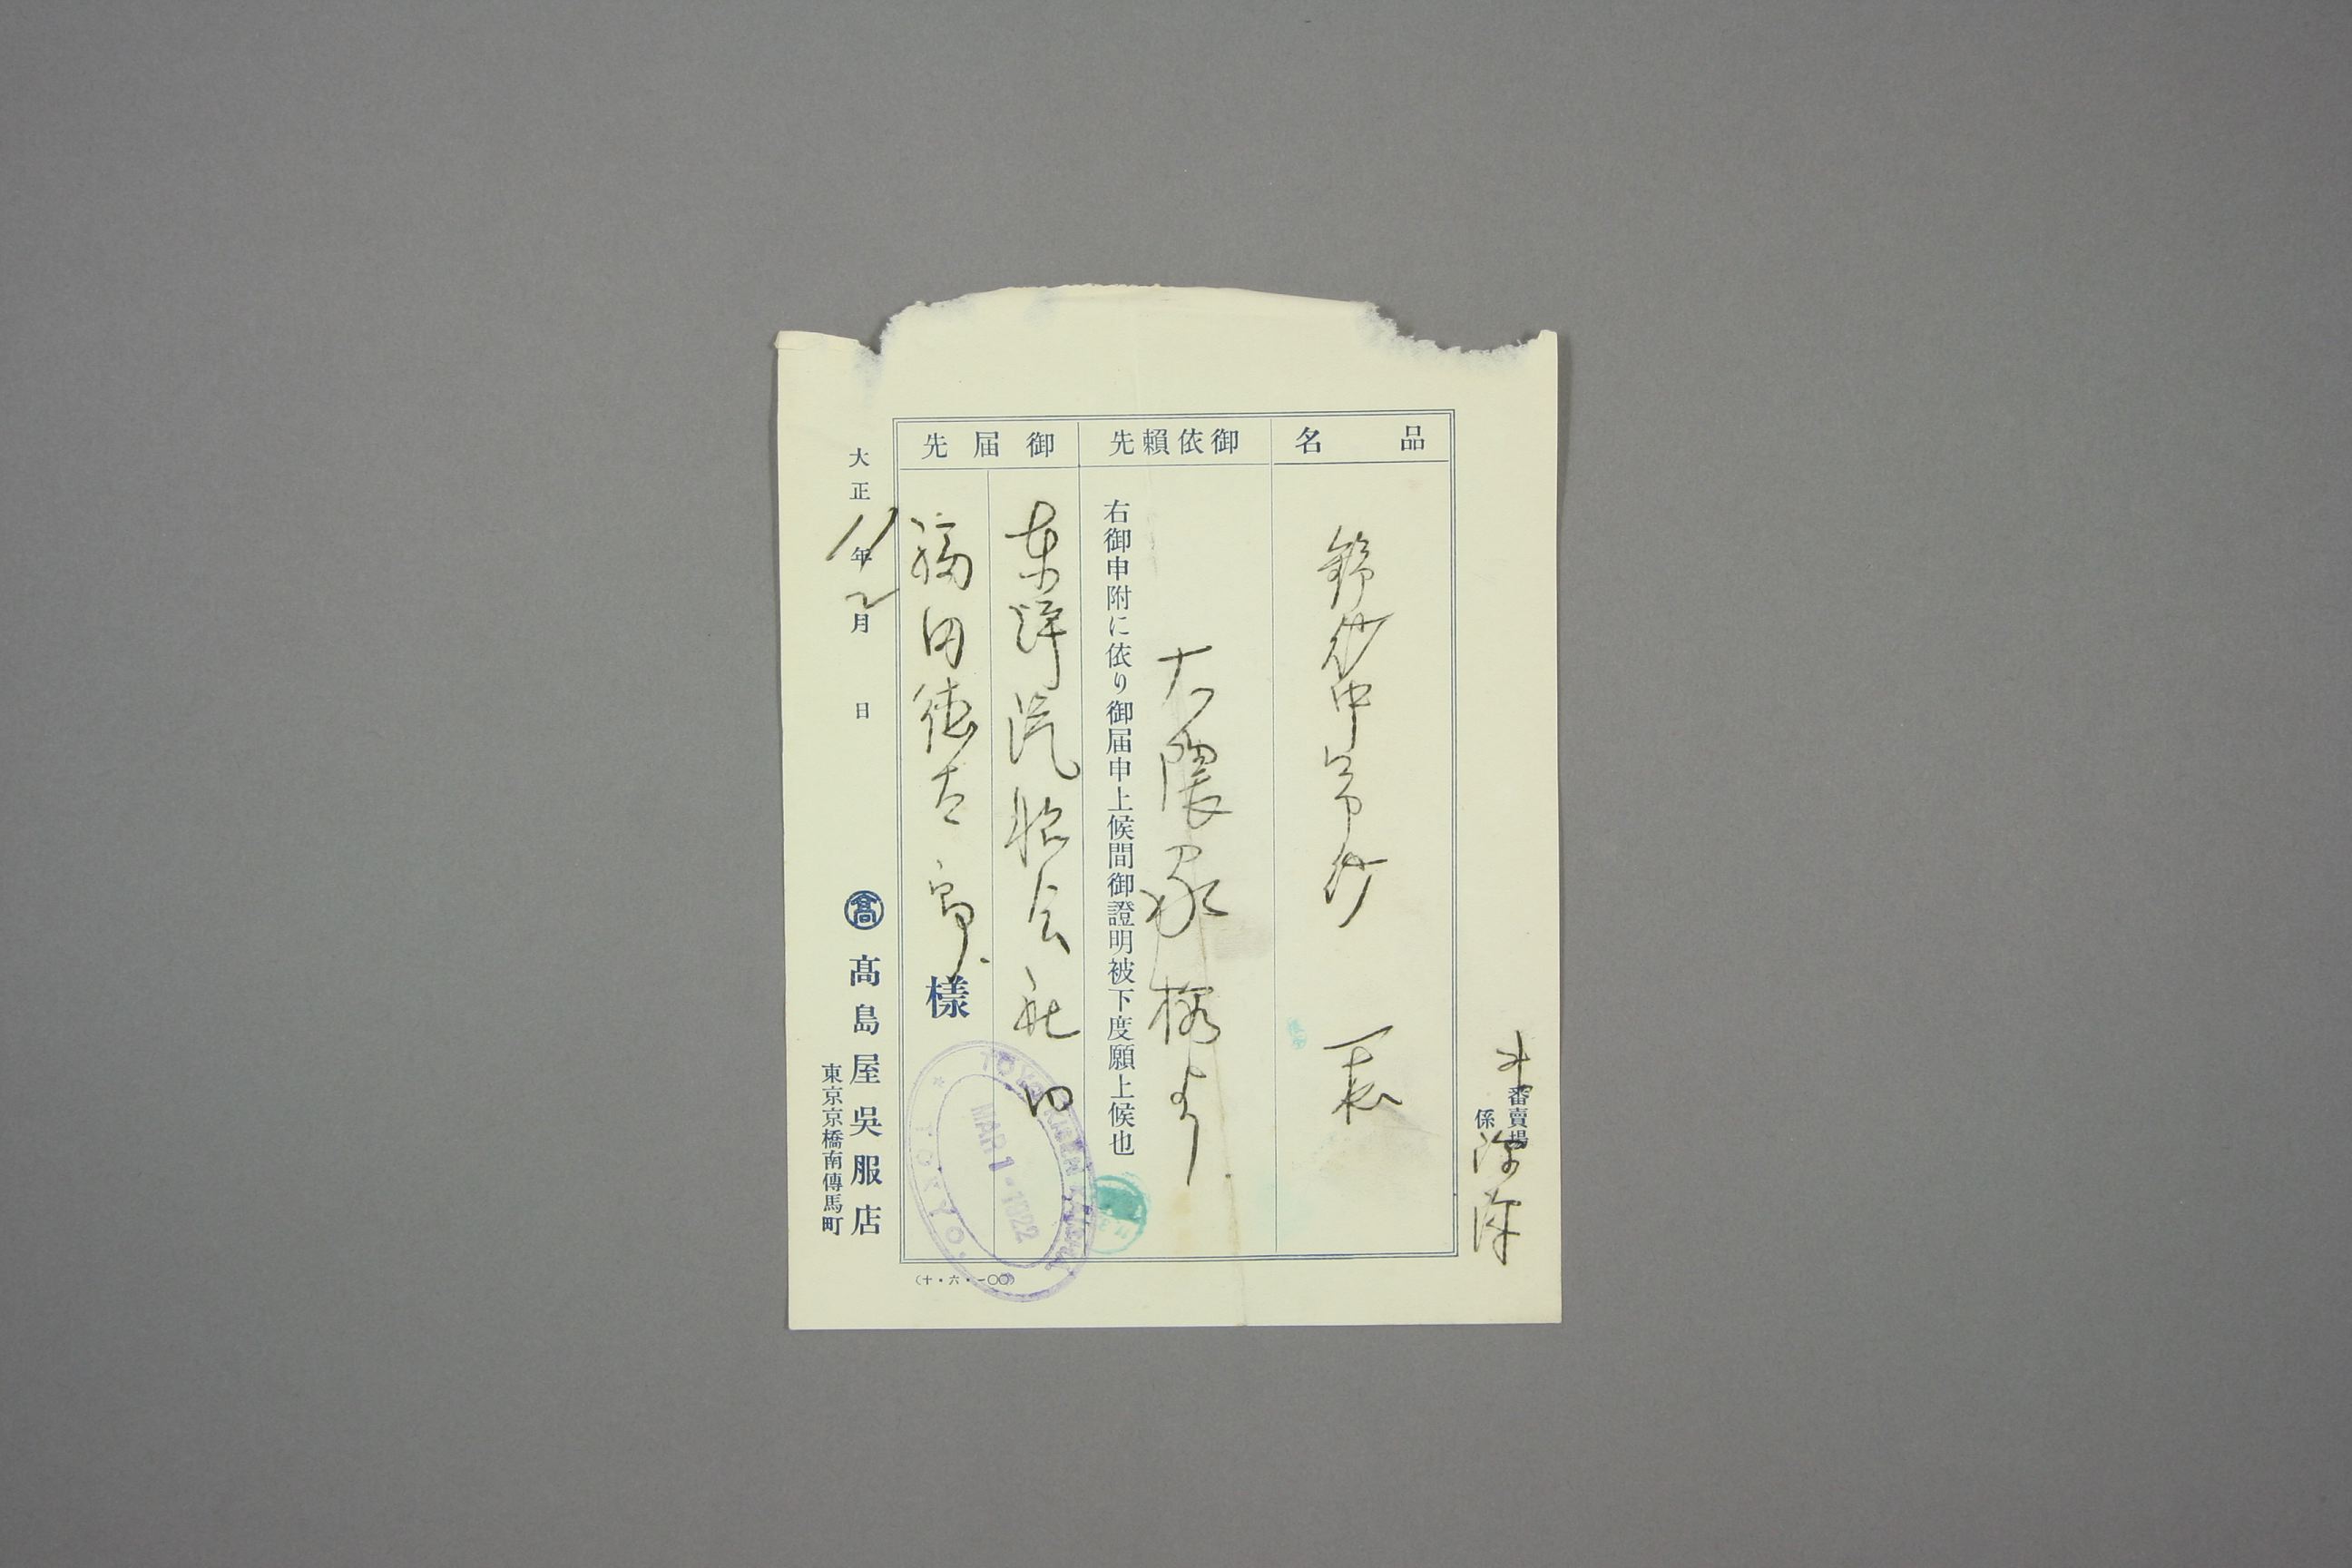 番賣場
係
品名
一表
御依賴先
大隈家様より
右御申附に依り御届申上候間御證明被下度願上候也
御届先
東洋汽船会社内
福田徳太郎様
大正11年2月 日
髙
髙島屋吳服店
東京京橋南傳馬町
(十・六・一〇〇)
TOYO KISEN KAISHA
MAR 1 - 1922
TOKYO